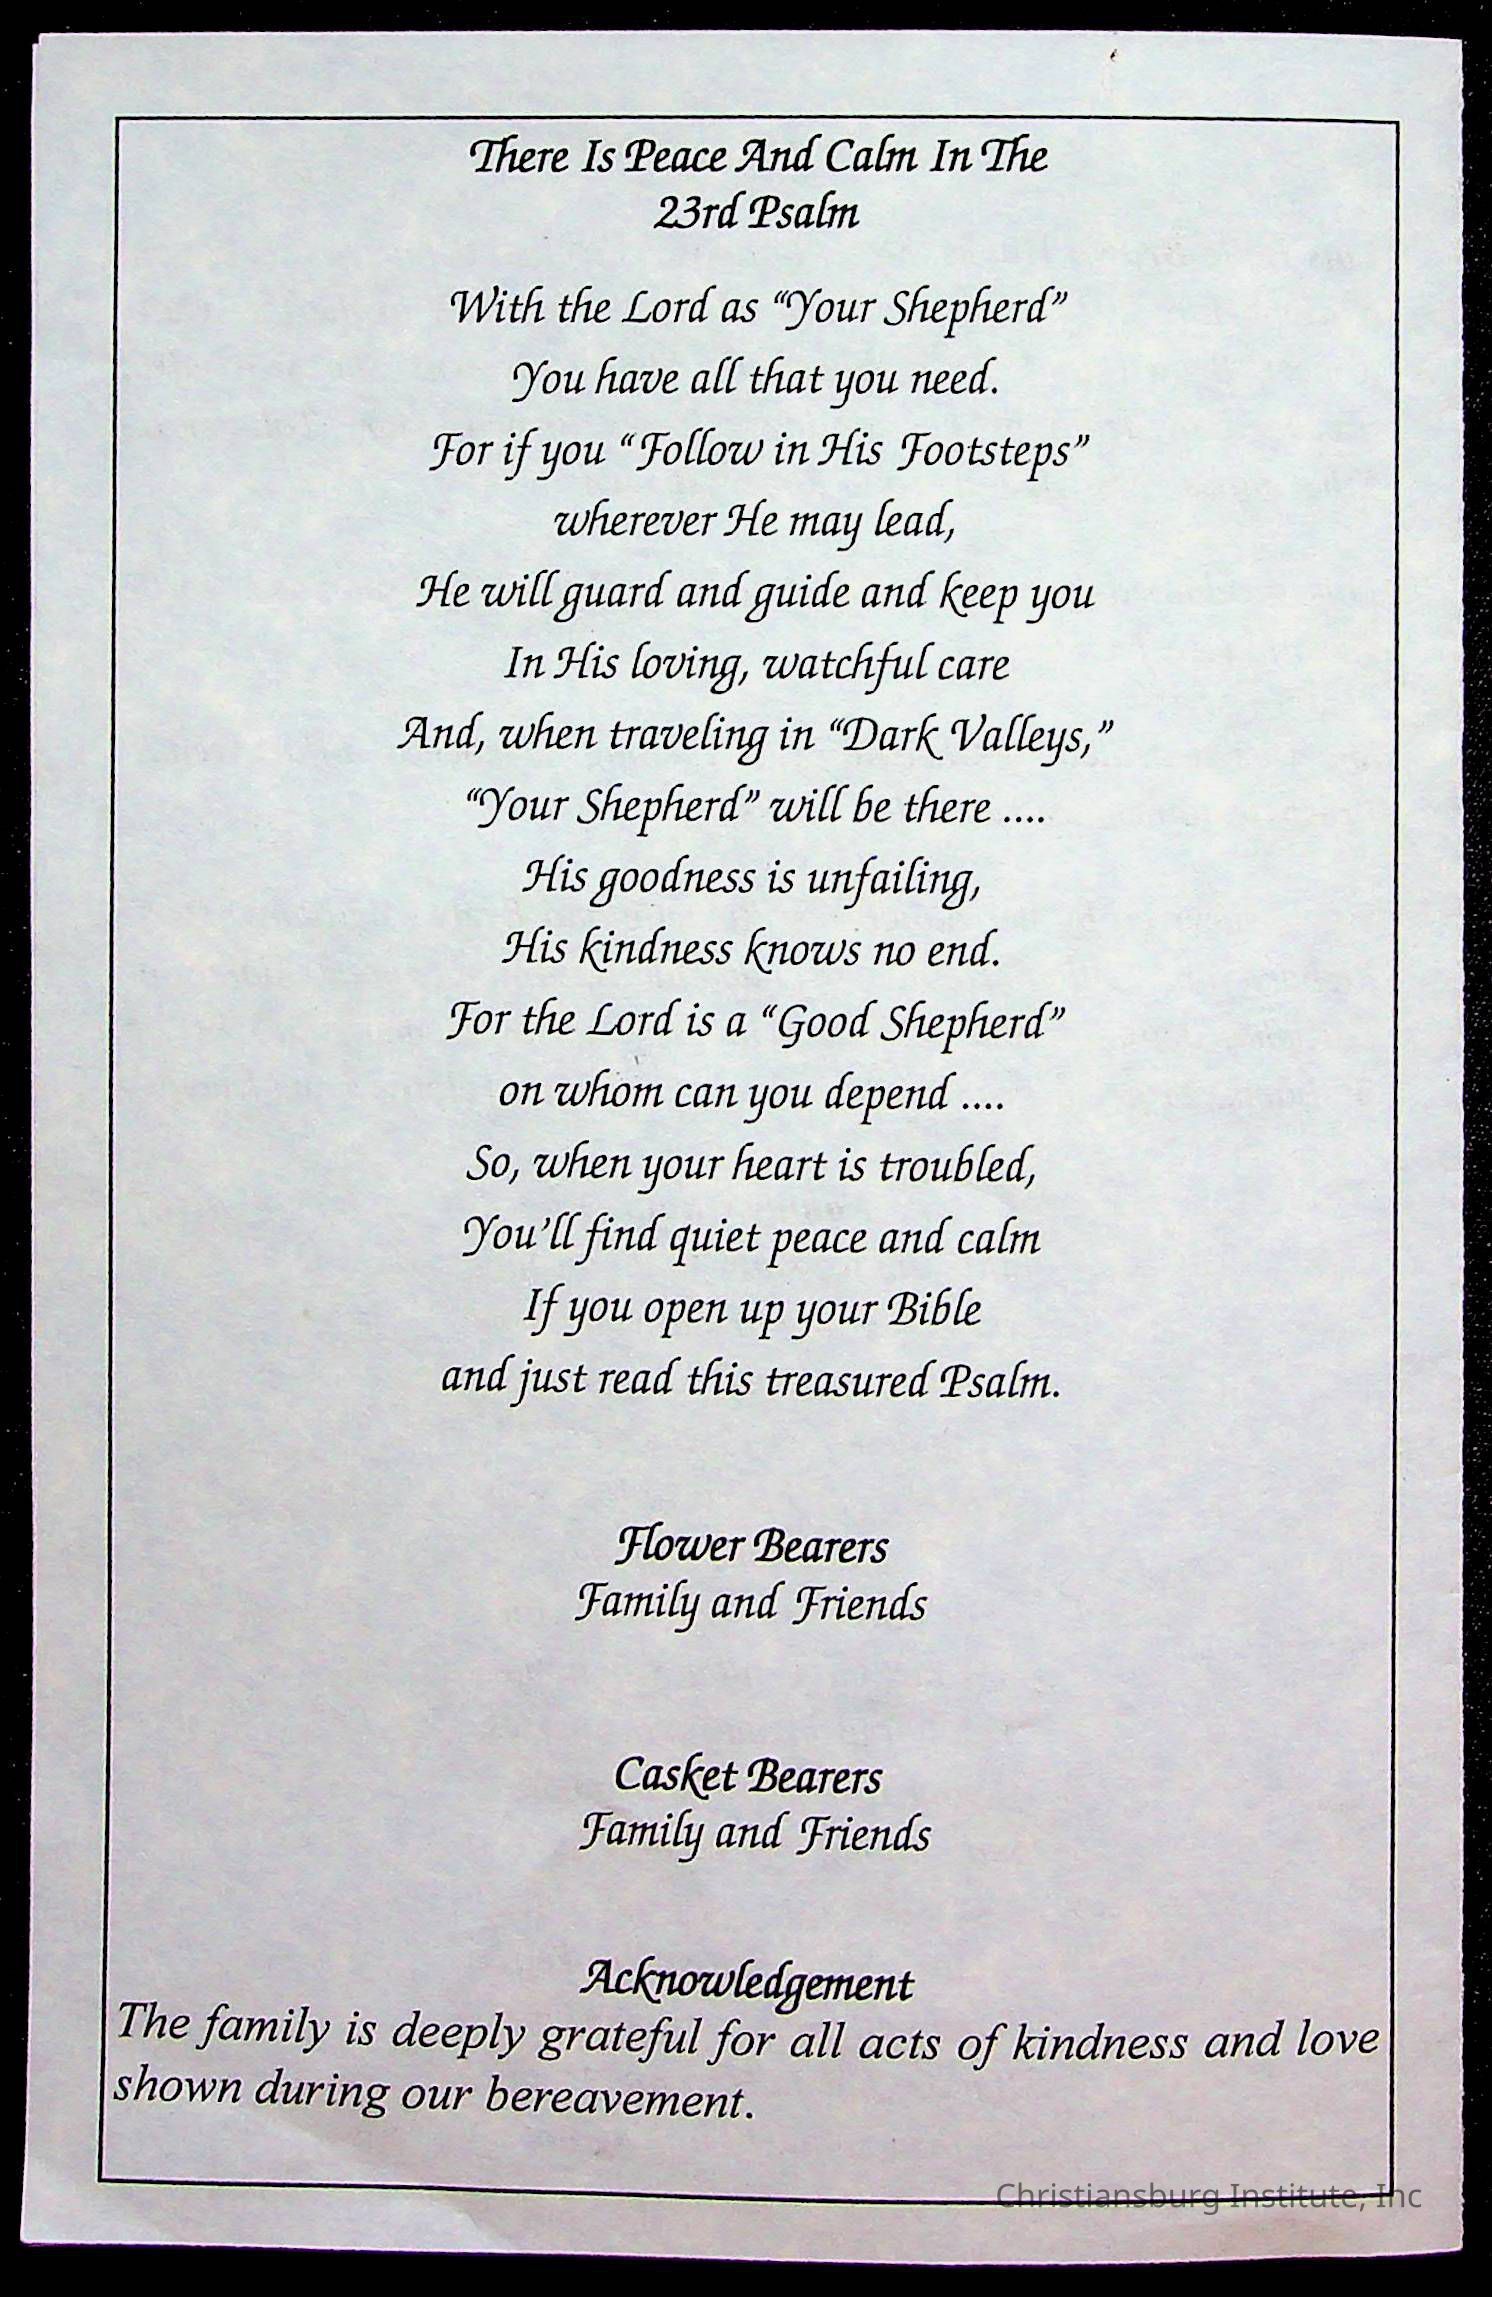 There Is Peace And Calm In The
23rd Psalm
With the Lord as “Your Shepherd”
You have all that you need.
For if you “Follow in His Footsteps”
wherever He may lead,
He will guard and guide and keep you
In His loving, watchful care
And, when traveling in “Dark Valleys,”
“Your Shepherd” will be there ....
His goodness is unfailing,
His kindness knows no end.
For the Lord is a “Good Shepherd”
on whom can you depend ....
So, when your heart is troubled,
You’ll find quiet peace and calm
If you open up your Bible
and just read this treasured Psalm.
Flower Bearers
Family and Friends
Casket Bearers
Family and Friends
Acknowledgement
The family is deeply grateful for all acts of kindness and love
shown during our bereavement.
Christiansburg Institute, Inc